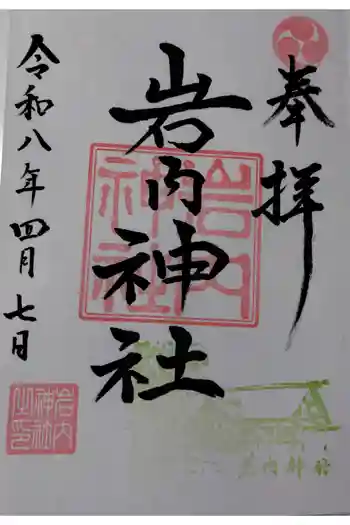 奉拝
岩内神社
令和八年四月七日
岩内神社
岩内神社之印
岩内神社